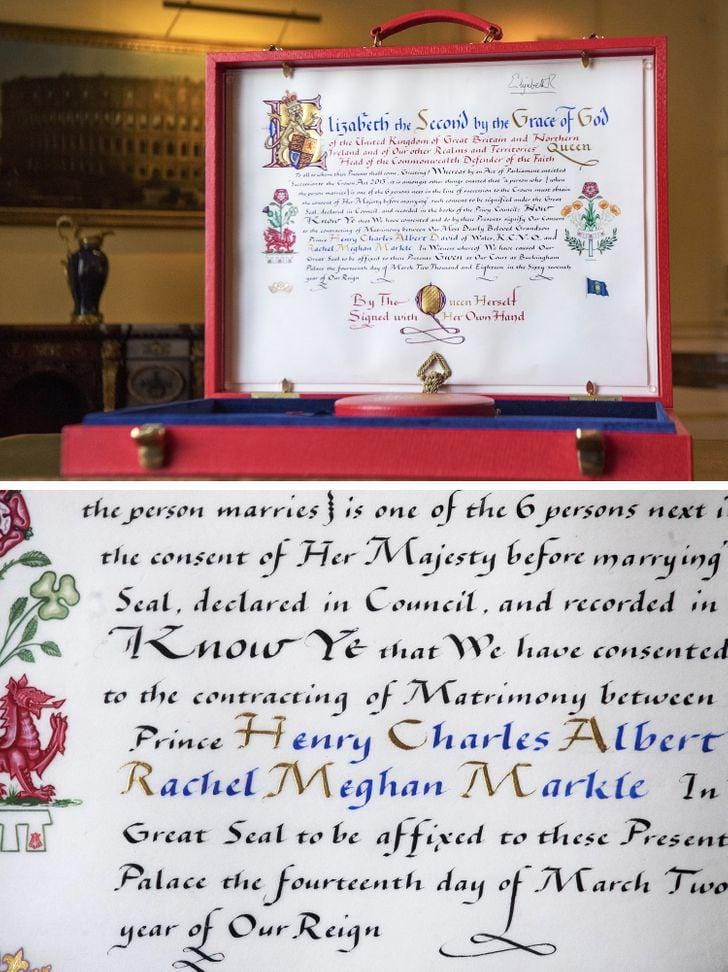 Elizabeth R
Elizabeth the Second by the Grace of God
of the United Kingdom of Great Britain and Northern
Ireland and of Our other Realms and Territories Queen
Head of the Commonwealth Defender of the Faith
To all to whom these Presents shall come, Greeting! Whereas by an Act of Parliament entitled
Succession to the Crown Act 2013, it is amongst other things enacted that a person who { when
the person marries } is one of the 6 persons next in the line of succession to the Crown must obtain
the consent of Her Majesty before marrying, such consent to be signified under the Great
Seal, declared in Council, and recorded in the books of the Privy Council; Now
Know Ye that We have consented and do by these Presents signify Our Consent
to the contracting of Matrimony between Our Most Dearly Beloved Grandson
Prince Henry Charles Albert David of Wales, K.C.V.O. and
Rachel Meghan Markle In Witness whereof We have caused Our
Great Seal to be affixed to these Presents Given at Our Court at Buckingham
Palace the fourteenth day of March Two Thousand and Eighteen in the Sixty-seventh
year of Our Reign
By The Queen Herself
Signed with Her Own Hand
the person marries } is one of the 6 persons next
the consent of Her Majesty before marrying
Seal, declared in Council, and recorded in
Know Ye that We have consented
to the contracting of Matrimony between
Prince Henry Charles Albert
Rachel Meghan Markle In
Great Seal to be affixed to these Present
Palace the fourteenth day of March Two
year of Our Reign